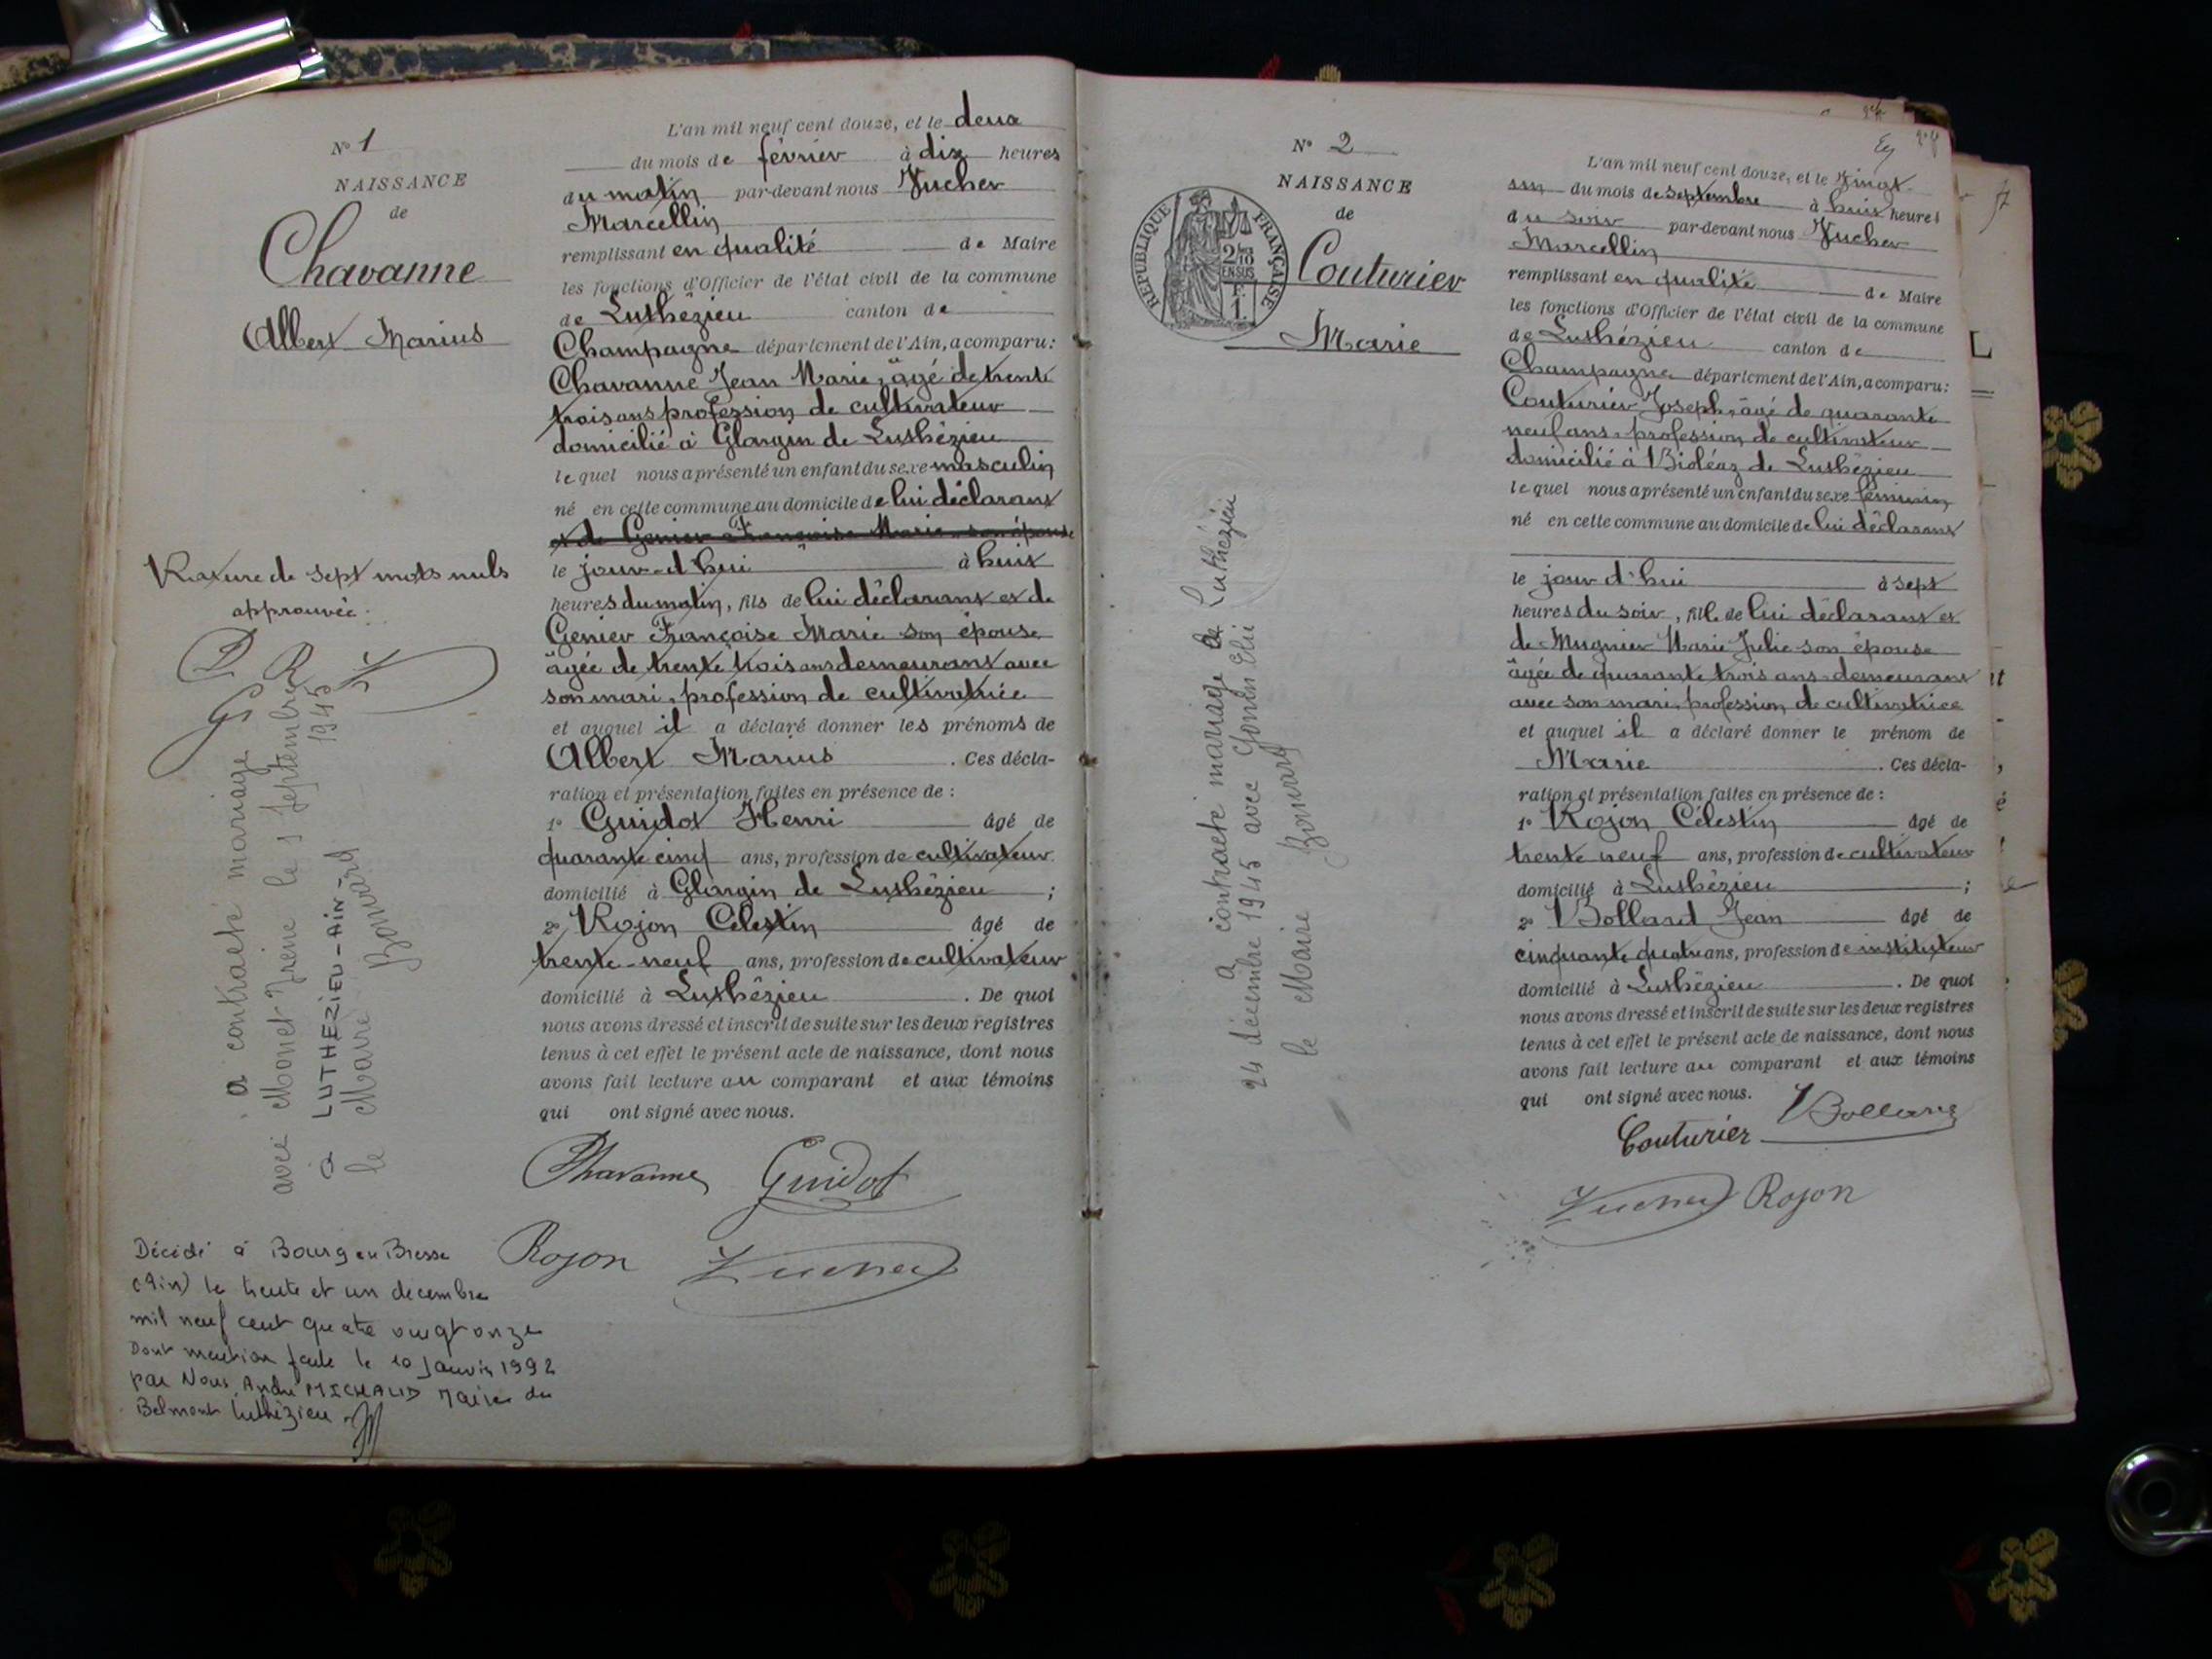 N° 1
NAISSANCE
de
Chavanne
Albert Marius
L'an mil neuf cent douze, et le deux
du mois de février à dix heures
du matin par-devant nous Jucher
Marcellin
remplissant en qualité de Maire
les fonctions d'Officier de l'état civil de la commune
de Luthézieu canton de
Champagne département de l'Ain, a comparu:
Chavanne Jean Marie, âgé de trente
trois ans profession de cultivateur
domicilié à Glargin de Luthézieu
lequel nous a présenté un enfant du sexe masculin
né en cette commune au domicile de lui déclarant
et de Genier Françoise Marie son épouse
le jour-d'hui à huit
heures du matin, fils de lui déclarant et de
Genier Françoise Marie son épouse
âgée de trente trois ans demeurant avec
son mari, profession de cultivatrice
et auquel il a déclaré donner les prénoms de
Albert Marius. Ces décla-
ration et présentation faites en présence de :
1° Guidot Henri âgé de
quarante cinq ans, profession de cultivateur
domicilié à Glargin de Luthézieu ;
2° Rojon Célestin âgé de
trente-neuf ans, profession de cultivateur
domicilié à Luthézieu. De quoi
nous avons dressé et inscrit de suite sur les deux registres
tenus à cet effet le présent acte de naissance, dont nous
avons fait lecture au comparant et aux témoins
qui ont signé avec nous.
Chavanne Guidot
Rojon Jucher
Rature de sept mots nuls
approuvée:
C R J
G
a contracté mariage
avec Monet Irène le 1 septembre 1945
à LUTHÉZIEU-AIN-
le Maire Bonnard
Décédé à Bourg en Bresse
(Ain) le trente et un décembre
mil neuf cent quatre vingt onze
Dont mention faite le 10 janvier 1992
par Nous, André MICHAUD Maire de
Belmont Luthézieu.
N° 2
NAISSANCE
de
Couturier
Marie
RÉPUBLIQUE FRANÇAISE
2/10
EN SUS
F.
1.
L'an mil neuf cent douze, et le vingt-
un du mois de septembre à huit heures
du soir par-devant nous Jucher
Marcellin
remplissant en qualité de Maire
les fonctions d'Officier de l'état civil de la commune
de Luthézieu canton de
Champagne département de l'Ain, a comparu:
Couturier Joseph, âgé de quarante
neuf ans, profession de cultivateur
domicilié à Bioléaz de Luthézieu
lequel nous a présenté un enfant du sexe féminin
né en cette commune au domicile de lui déclarant
le jour d'hui à sept
heures du soir, fille de lui déclarant et
de Mugnier Marie Julie son épouse
âgée de quarante trois ans demeurant
avec son mari, profession de cultivatrice
et auquel il a déclaré donner le prénom de
Marie. Ces décla-
ration et présentation faites en présence de :
1° Rojon Célestin âgé de
trente neuf ans, profession de cultivateur
domicilié à Luthézieu ;
2° Bollard Jean âgé de
cinquante quatre ans, profession de instituteur
domicilié à Luthézieu. De quoi
nous avons dressé et inscrit de suite sur les deux registres
tenus à cet effet le présent acte de naissance, dont nous
avons fait lecture au comparant et aux témoins
qui ont signé avec nous.
Bollard
Couturier
Jucher Rojon
a contracté mariage de Luthézieu
24 décembre 1945 avec Gonin Elie
le Maire Bonnard